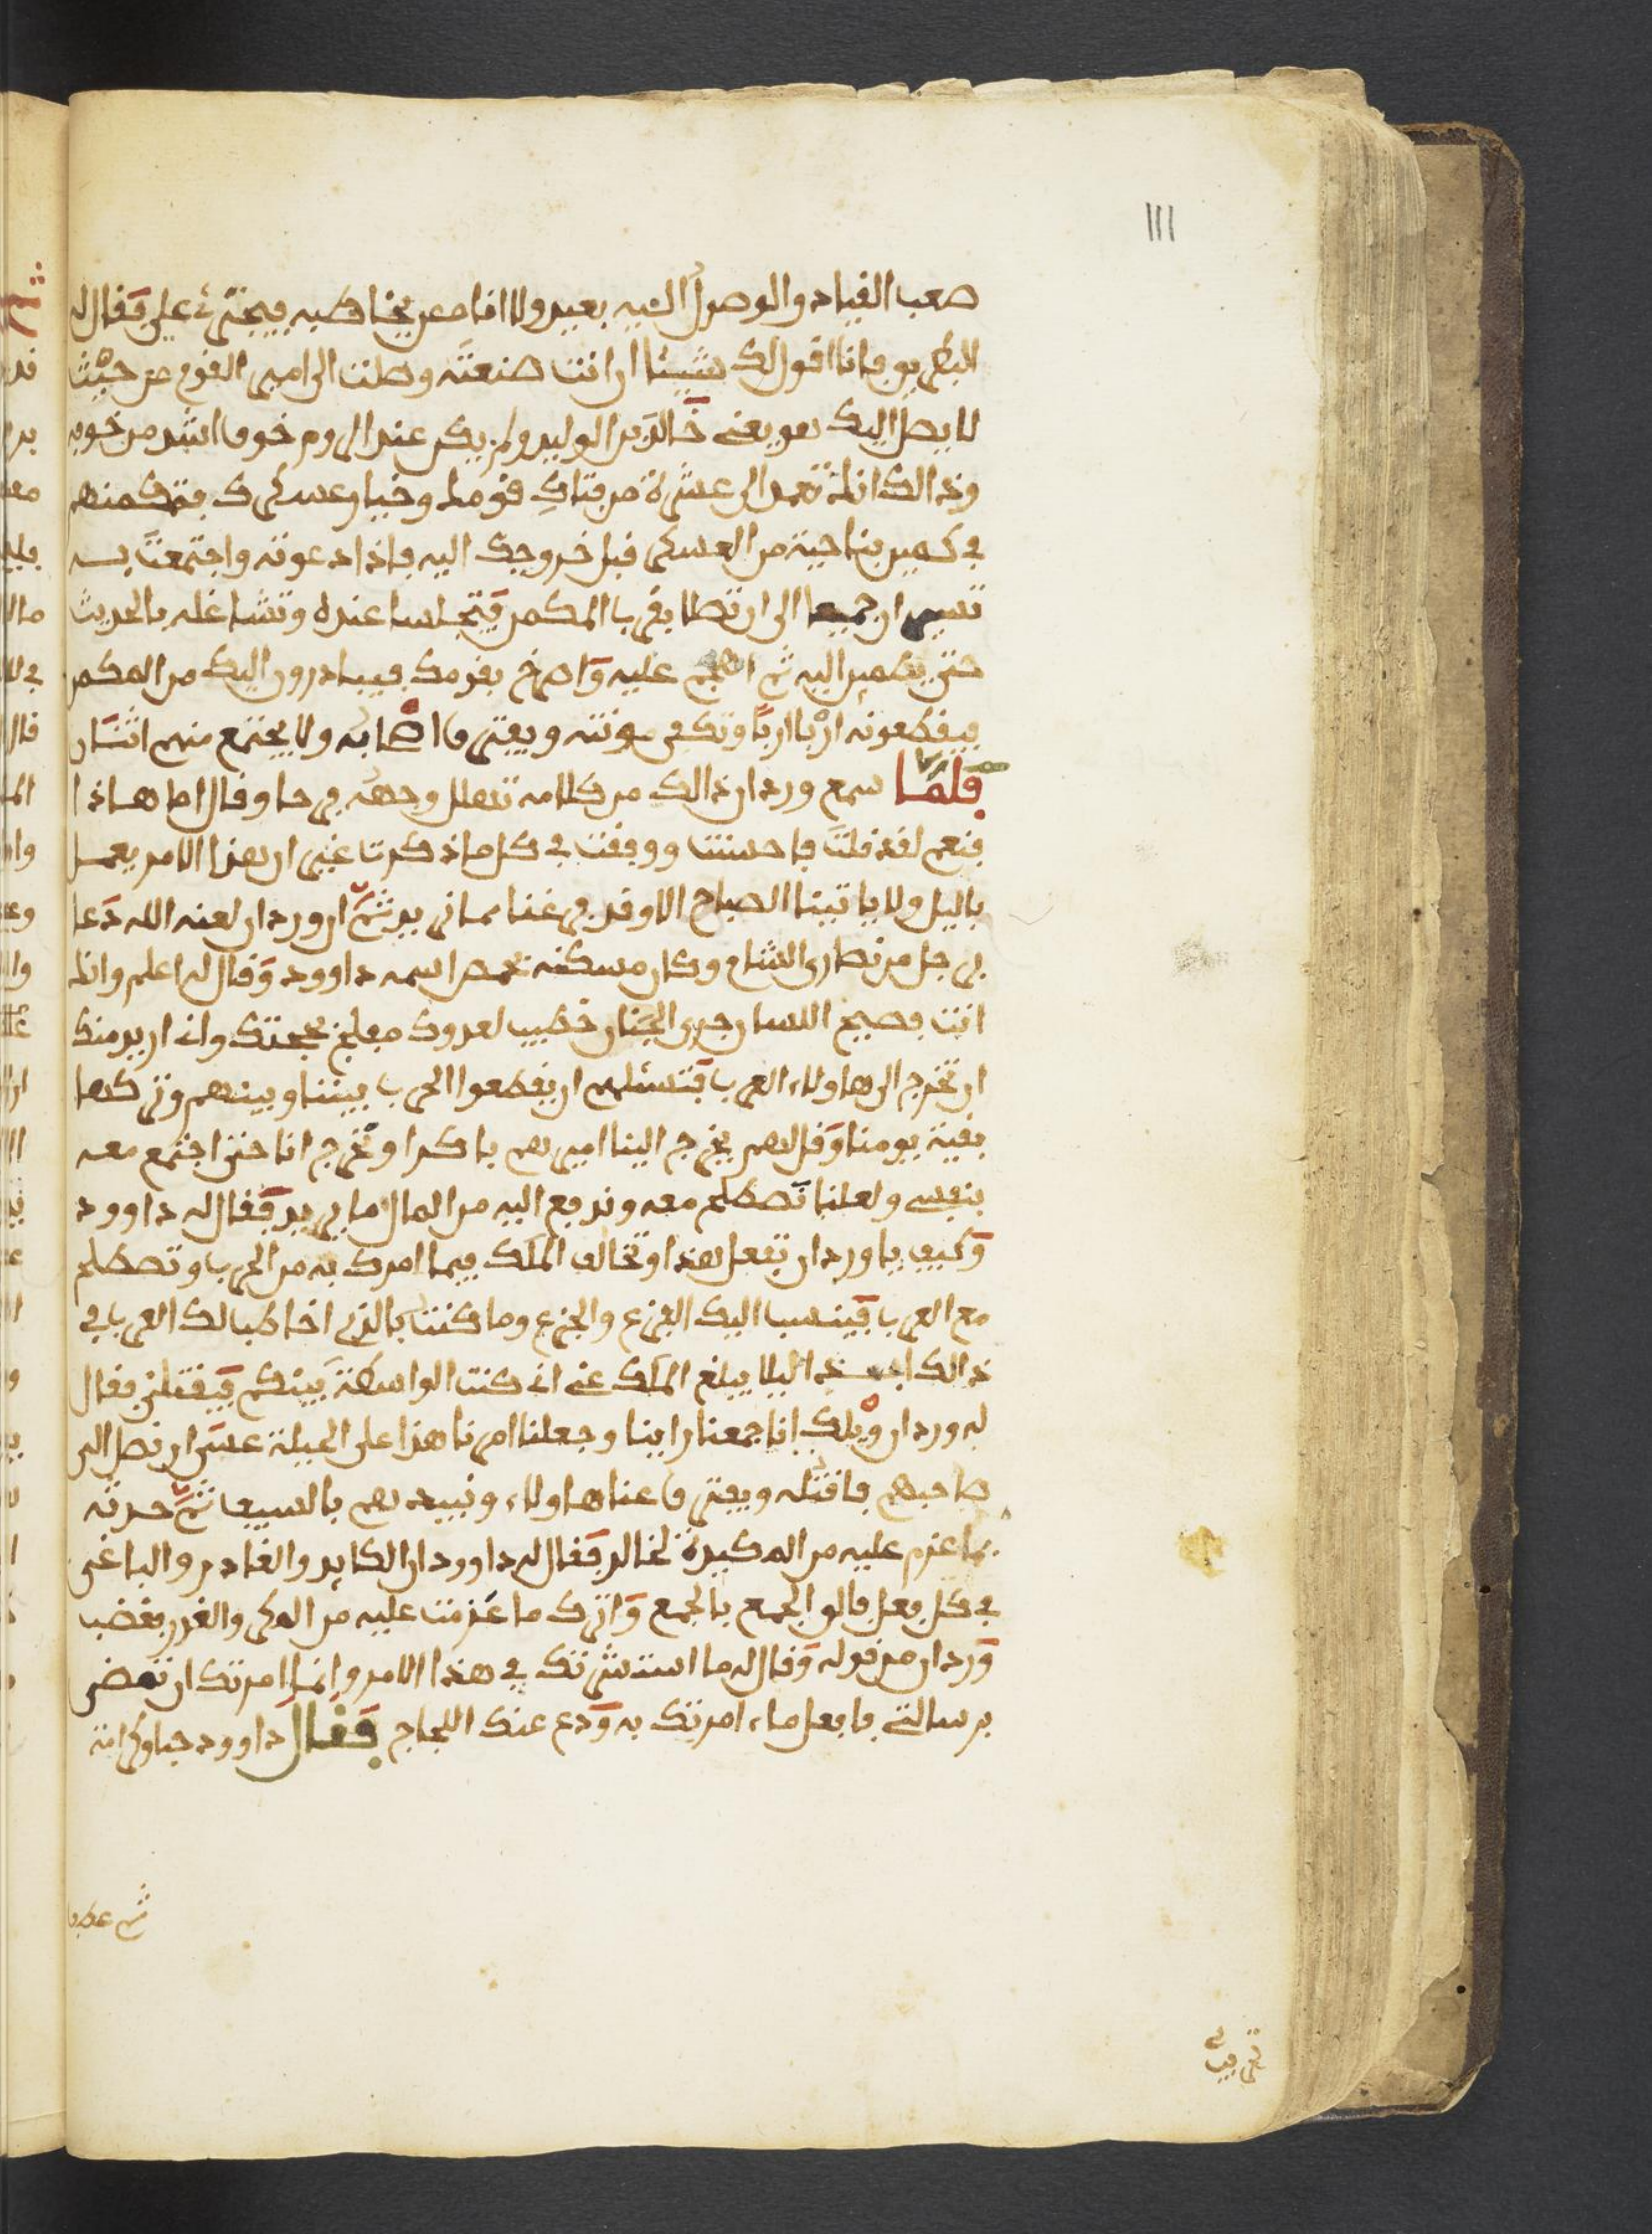 111
صعب القياد والوصول اليه بعيد ولا انا ممن يخاطبه فيجترئ علي فقال له
البطريق فانا اقول لك شيئا ان انت صنعته وصلت الى امير القوم من حيث
لا يصل اليك هو يعني خالد بن الوليد ولم يكن عند الروم خوفا اشد من خوفه
وذالك انك تعمد الى عشرة من فتاك قومك وخيار عسكرك فتمكنهم
في كمين بناحية من العسكر قبل خروجك اليه فاذا دعوته واجتمعت به
تسيران جميعا الى ان تصلا بقرب المكمن فتجلسا عنده وتشاغله بالحديث
حتى يطمين اليه ثم اهجم عليه واصرخ بقومك فيبادرون اليك من المكمن
فيقطعونه اربا اربا وتكفى موتته ويفترق اصحابه ولا يجتمع منهم اثنان
فلما سمع وردان ذالك من كلامه تهلل وجهه فرحا وقال اما هاذا
فنعم لقد قلت فاحسنت ووفقت في كل ما ذكرت غير ان هذا الامر يعمل
باليل ولا ياتينا الصباح الا وقد فرغنا مما نريد ثم ان وردان لعنه الله دعا
برجل من نصارى الشام وكان مسكنه بحمص اسمه داوود وقال له اعلم وانك
انت فصيح اللسان جري الجنان خطيب لعدوك مبلغ بحجتك واني اريد منك
ان تخرج الى هاولاء العرب فتسئلهم ان يقطعوا الحرب بيننا وبينهم وتركها
بقية يومنا وقل لهم يخرج الينا اميرهم باكرا ونخرج انا حتى اجتمع معه
بنفسي ولعلنا نصطلح معه وندفع اليه من المال ما يريد فقال له داوود
وكيف يا وردان تفعل هذا وتخالف الملك فيما امرك به من الحرب وتصطلح
مع العرب فينسب اليك الفزع والجزع وما كنت بالذي اخاطب لك العرب في
ذالك ابدا ليلا يبلغ الملك عني اني كنت الواسطة بينكم فيقتلني فقال
له وردان ويلك انا جمعنا راينا وجعلنا امرنا هذا على الحيلة عسى ان نصل الى
صاحبهم فاقتله ويفترق عنا هاولاء ونبيدهم بالسيف ثم حدثه
بما عزم عليه من المكيدة لخالد فقال له داوود ان الكايد والغادر والباغي
في كل فعل فالق الجمع بالجمع واترك ما عزمت عليه من المكر والغدر فغضب
وردان من قوله وقال له ما استشرتك في هذا الامر وانما امرتك ان تمض
برسالتي فافعل ما امرتك به ودع عنك اللجاج فقال داوود حبا وكرامة
ثم عطف